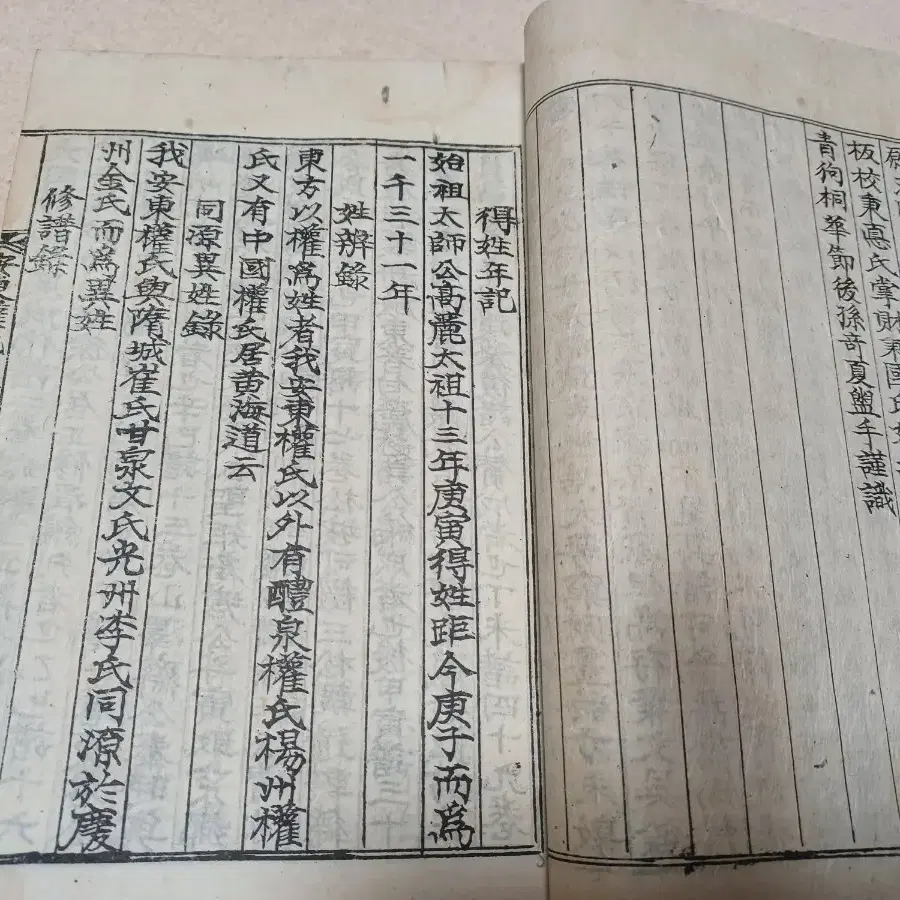 板校東悳氏掌財秉國氏
青狗桐華節後孫奇夏盥手謹識
得姓年記
始祖太師公高麗太祖十三年庚寅得姓距今庚子而爲
一千三十一年
姓辨錄
東方以權爲姓者我安東權氏以外有醴泉權氏楊州權
氏又有中國權氏居黄海道云
同源異姓錄
我安東權氏與隋城崔氏甘泉文氏光州李氏同源於慶
州金氏而爲異姓
修譜錄